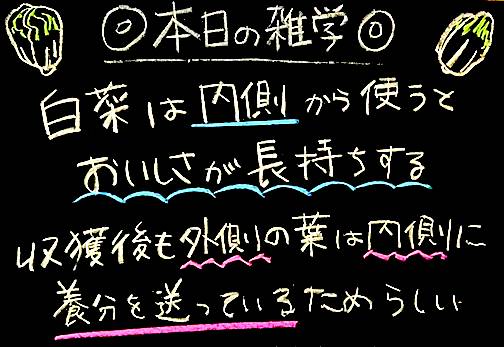 ◎本日の雑学◎
白菜は内側から使うと
おいしさが長持ちする
収獲後も外側の葉は内側に
養分を送っているためらしい